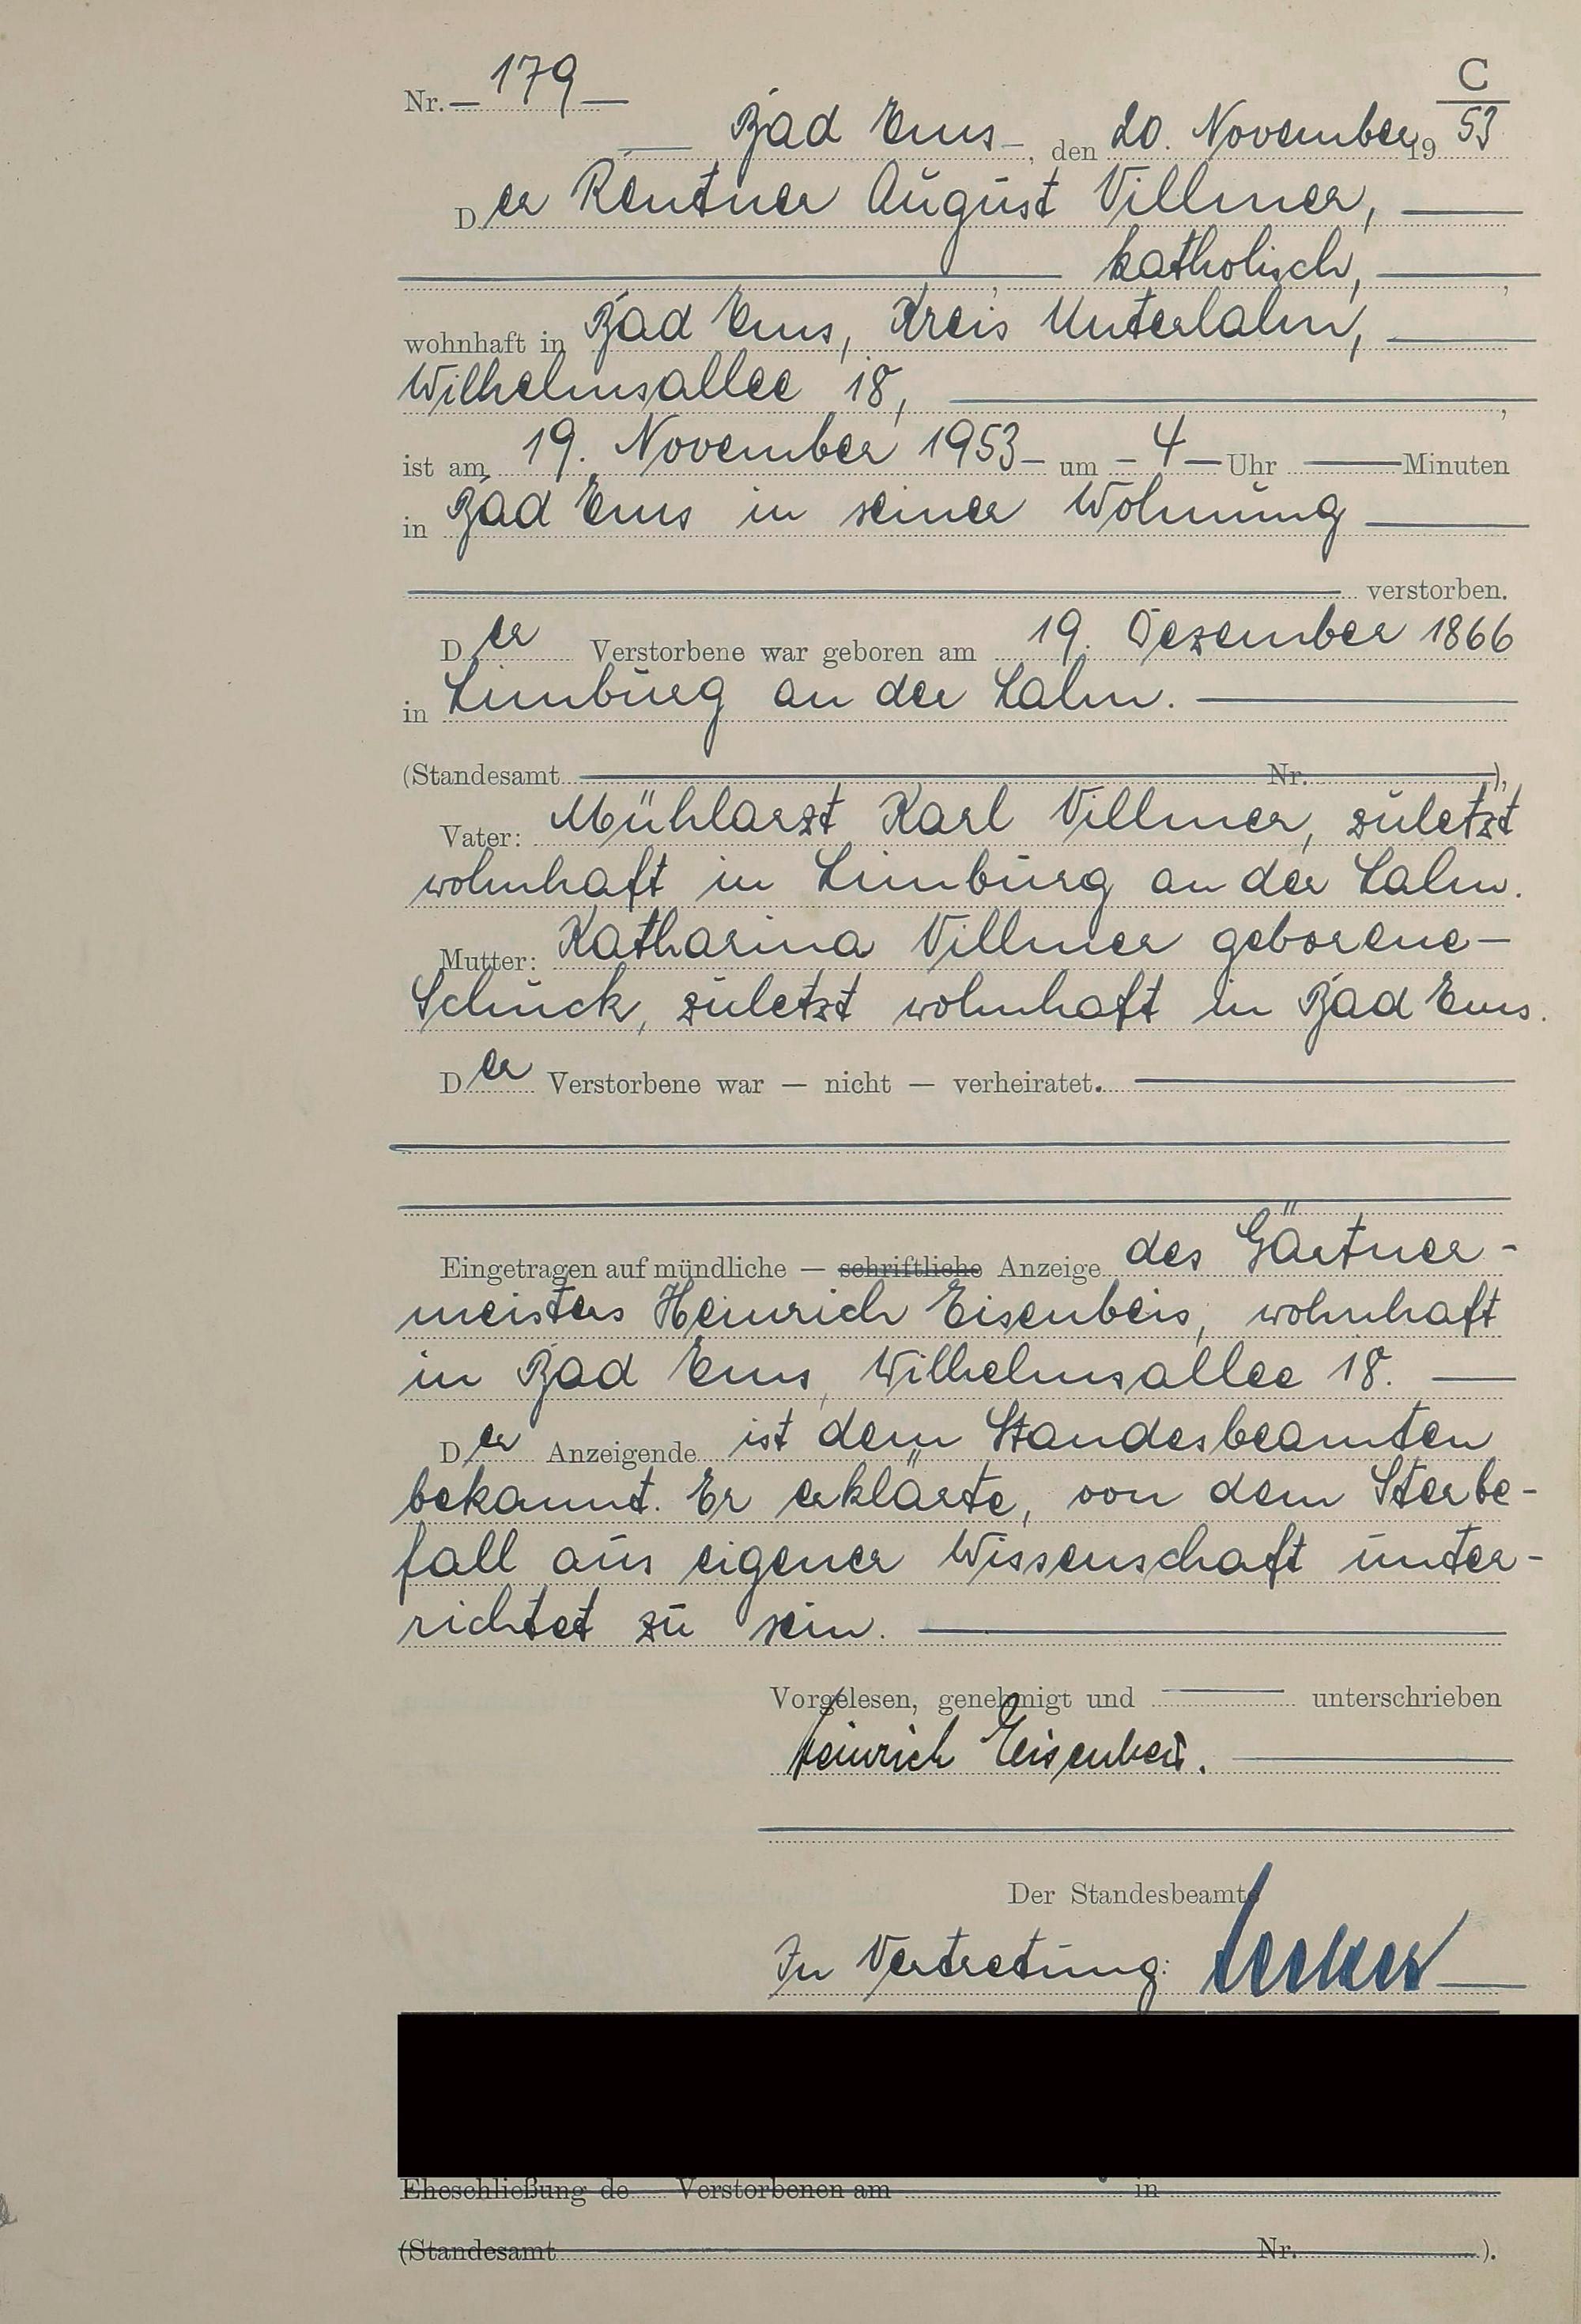 C
Nr. — 179 —
— Bad Ems —, den 20. November 19 53
Der Rentner August Villmer, —
— katholisch, —
wohnhaft in Bad Ems, Kreis Unterlahn, —
Wilhelmsallee 18, —
ist am 19. November 1953 — um — 4 — Uhr — Minuten
in Bad Ems in seiner Wohnung —
— verstorben.
Der Verstorbene war geboren am 19. Dezember 1866
in Limburg an der Lahn. —
(Standesamt — Nr. —),
Vater: Mühlarzt Karl Villmer, zuletzt
wohnhaft in Limburg an der Lahn.
Mutter: Katharina Villmer geborene —
Schuck, zuletzt wohnhaft in Bad Ems.
Der Verstorbene war — nicht — verheiratet. —
Eingetragen auf mündliche — schriftliche Anzeige des Gärtner-
meisters Heinrich Eisenbeis, wohnhaft
in Bad Ems, Wilhelmsallee 18. —
Der Anzeigende ist dem Standesbeamten
bekannt. Er erklärte, von dem Sterbe-
fall aus eigener Wissenschaft unter-
richtet zu sein. —
Vorgelesen, genehmigt und — unterschrieben
Heinrich Eisenbeis. —
Der Standesbeamte
In Vertretung:
Eheschließung de Verstorbenen am in
(Standesamt Nr. ).